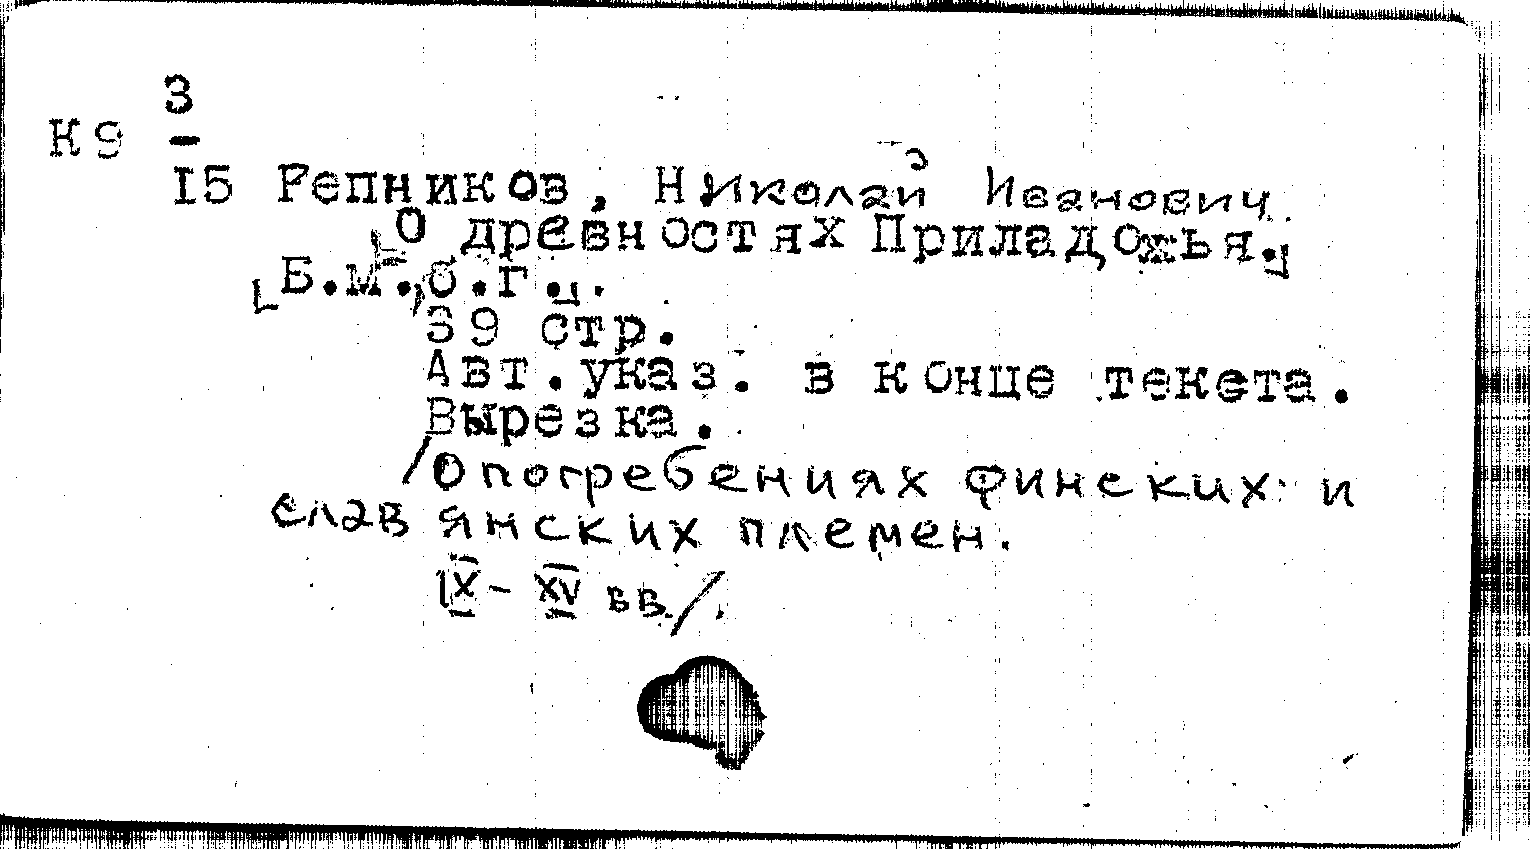 К9 3
–
15 Репников, Николай Иванович
[О древностях Приладожья.]
[Б.м.,б.г.].
39 стр.
Авт.указ. в конце текста.
Вырезка.
/О погребениях финских и
славянских племен.
IX - XV вв/.